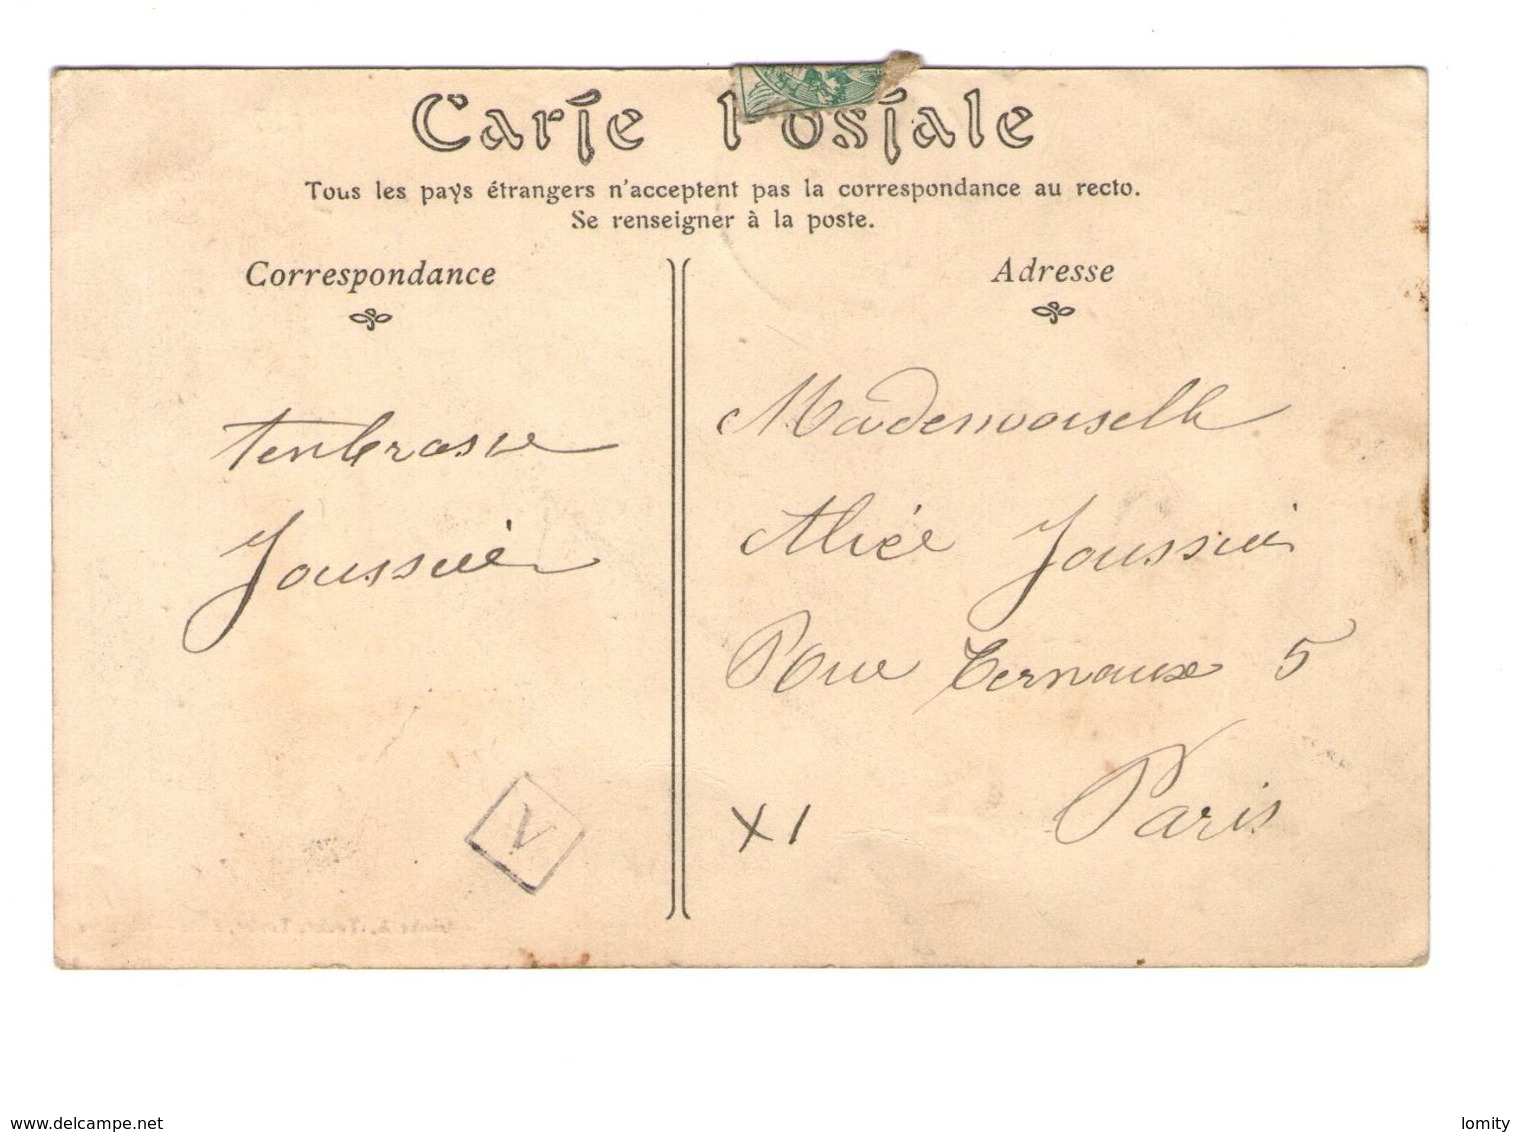 Carte Postale
Tous les pays étrangers n'acceptent pas la correspondance au recto.
Se renseigner à la poste.
Correspondance
Joussué
V
Adresse
Mademoiselle
Alice Joussué
Rue Ternaux 5
Paris
XI
www.delcampe.net
lomity